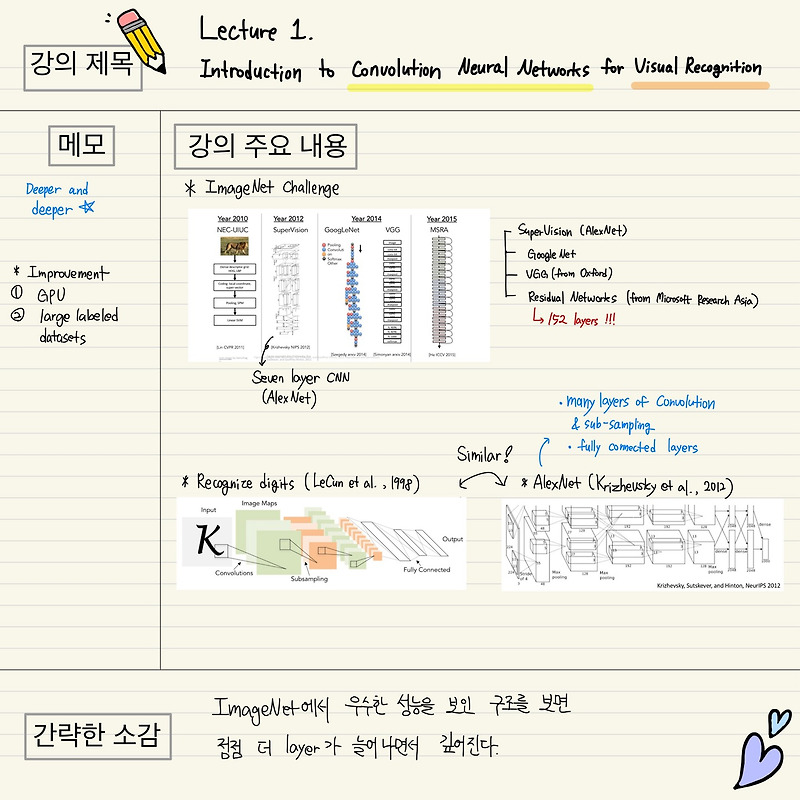 강의 제목
Lecture 1.
Introduction to Convolution Neural Networks for Visual Recognition
메모
Deeper and
deeper
* Improvement
① GPU
② large labeled
datasets
강의 주요 내용
* ImageNet Challenge
Year 2010
NEC-UIUC
[Lin CVPR 2011]
Year 2012
SuperVision
[Krizhevsky NIPS 2012]
Year 2014
GoogLeNet
VGG
Pooling
Convoluti
on
Softmax
Other
[Szegedy arxiv 2014]
[Simonyan arxiv 2014]
Year 2015
MSRA
[He ICCV 2015]
Seven layer CNN
(AlexNet)
SuperVision (AlexNet)
GoogleNet
VGG (from Oxford)
Residual Networks (from Microsoft Research Asia)
↳ 152 layers !!!
• many layers of Convolution
& sub-sampling
• fully connected layers
Similar?
* Recognize digits (LeCun et al., 1998)
Input
Image Maps
Output
Convolutions
Subsampling
Fully Connected
* AlexNet (Krizhevsky et al., 2012)
Max
pooling
Max
pooling
Max
pooling
dense
Krizhevsky, Sutskever, and Hinton, NeurIPS 2012
간략한 소감
ImageNet에서 우수한 성능을 보인 구조를 보면
점점 더 layer가 늘어나면서 깊어진다.